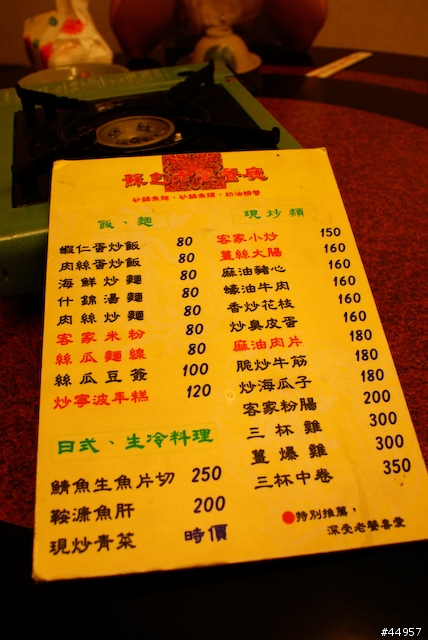 砂鍋魚翅、砂鍋魚頭、奶油螃蟹
飯、麵
蝦仁蛋炒飯 80
肉絲蛋炒飯 80
海鮮炒麵 80
什錦湯麵 80
肉絲炒麵 80
客家米粉 80
絲瓜麵線 80
絲瓜豆簽 100
炒寧波年糕 120
日式、生冷料理
鯖魚生魚片切 250
鞍濂魚肝 200
現炒青菜 時價
現炒類
客家小炒 150
薑絲大腸 160
麻油豬心 160
蠔油牛肉 160
香炒花枝 160
炒臭皮蛋 160
麻油肉片 180
脆炒牛筋 180
炒海瓜子 180
客家粉腸 200
三杯雞 300
薑爆雞 300
三杯中卷 350
特別推薦,
深受老饕喜愛
#44957